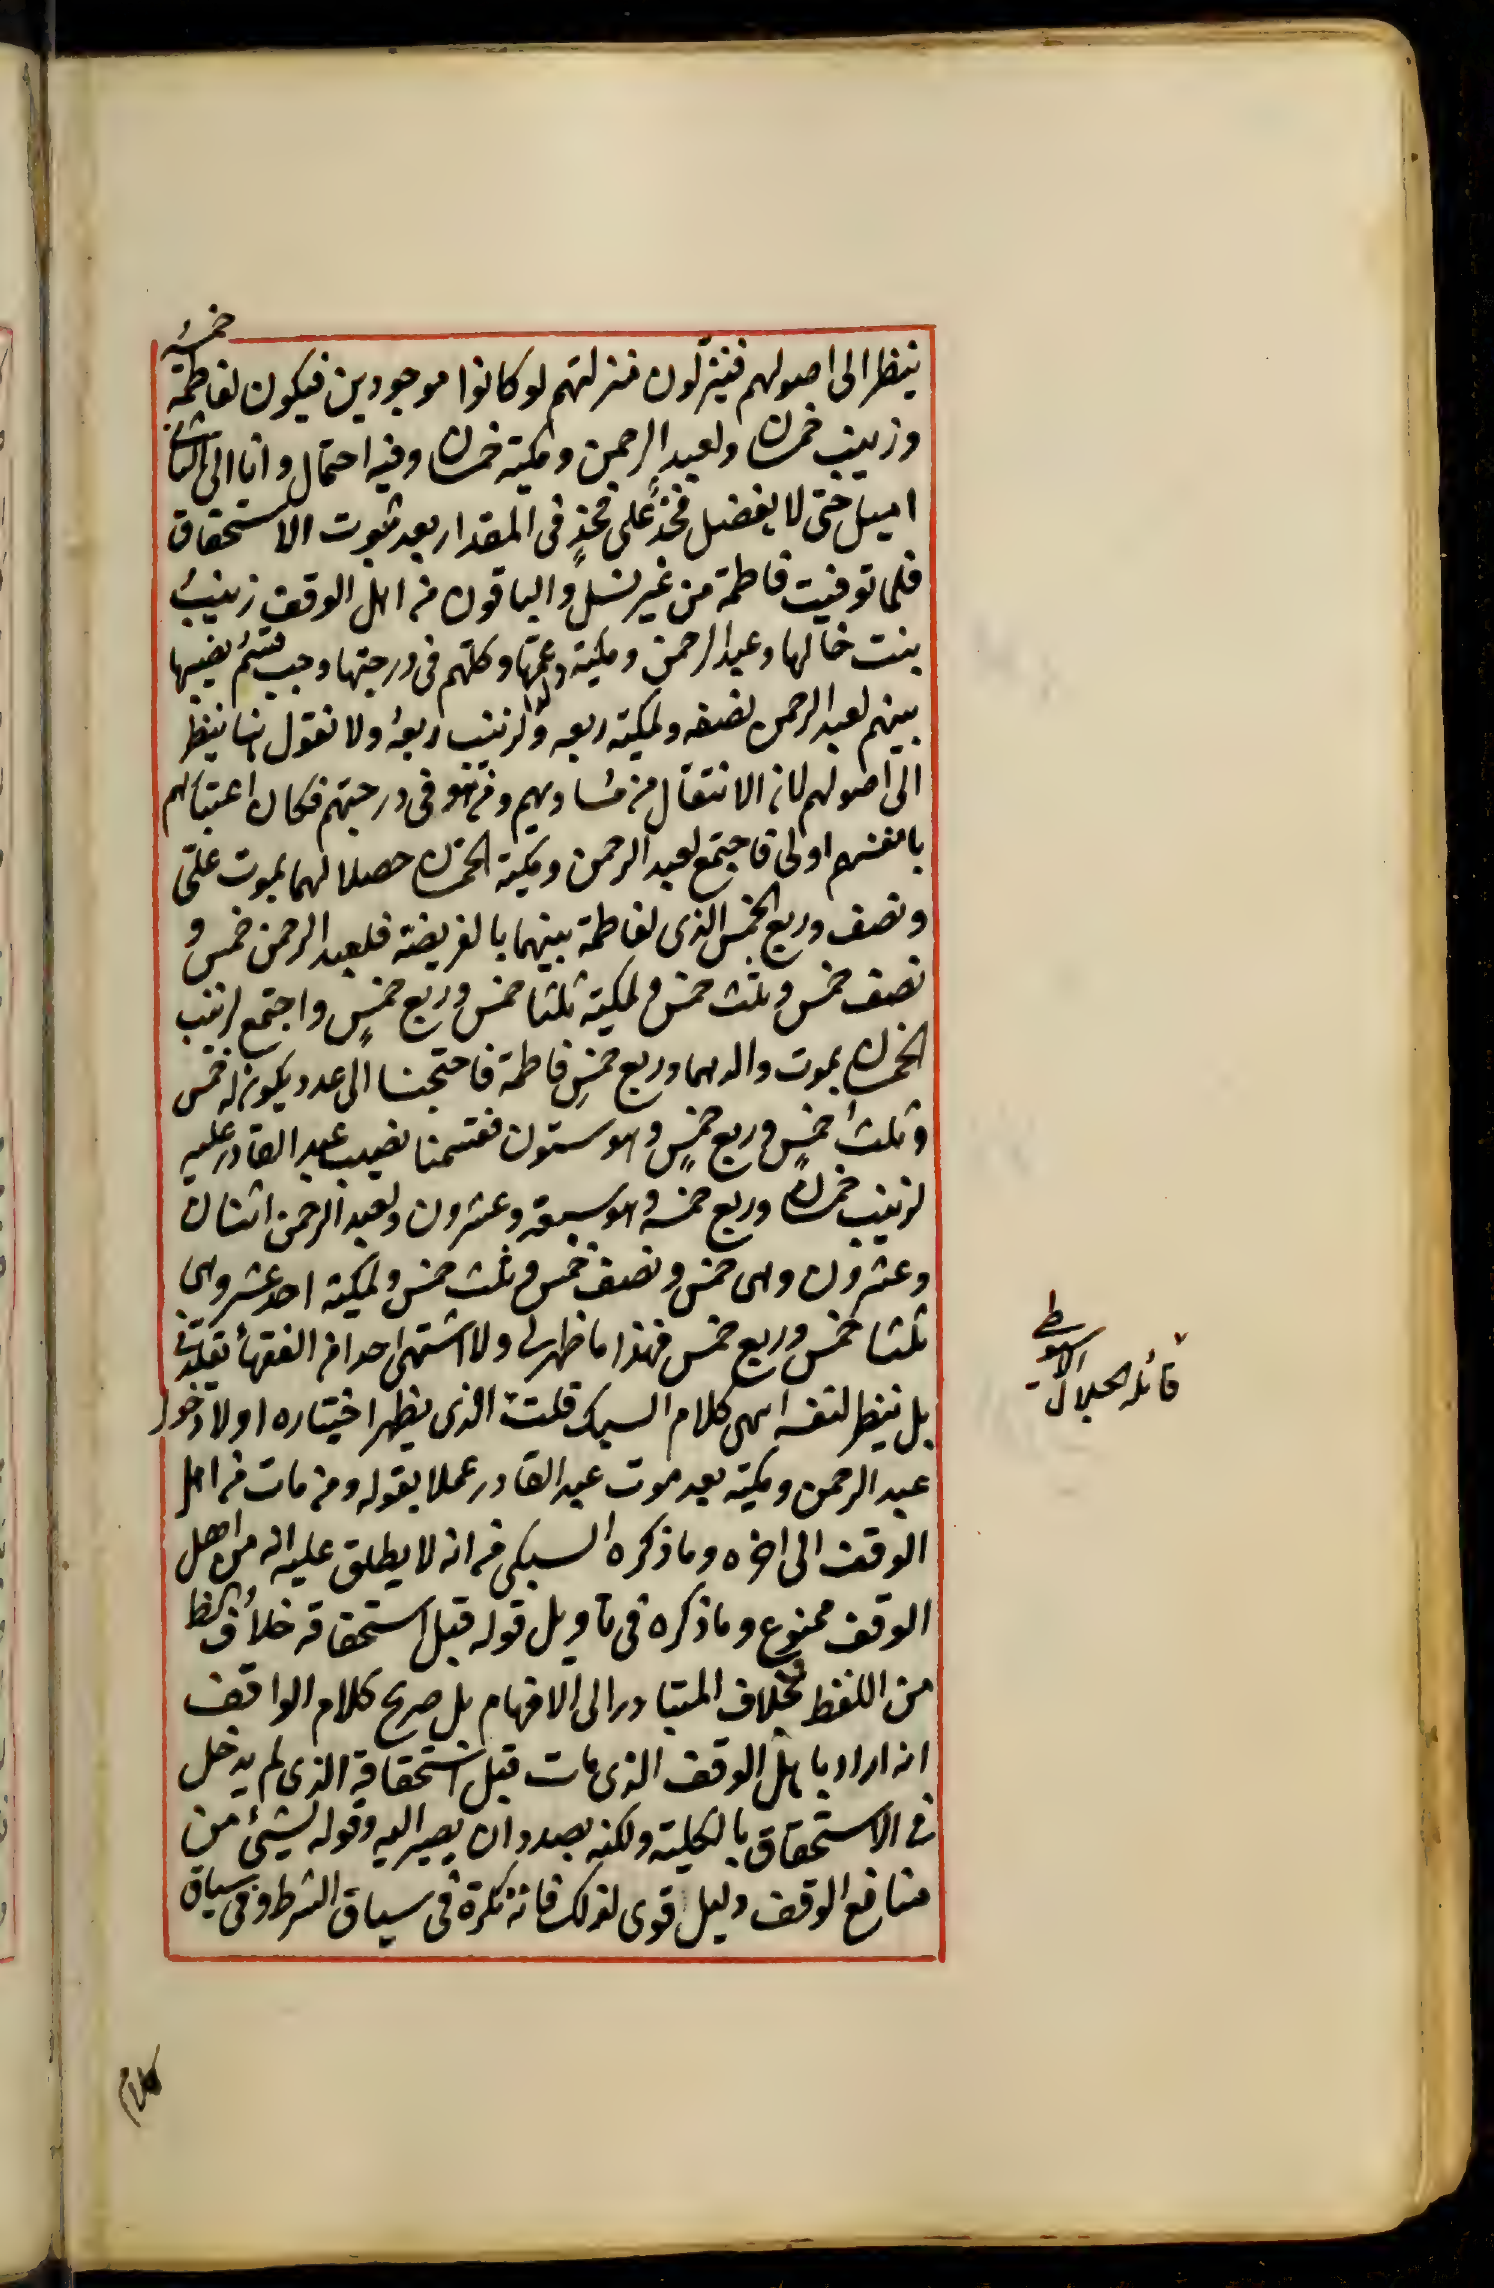 ينظر الى اصولهم فينزلون منزلتهم لو كانوا موجودين فيكون لفاطمة خمسه
وزينب خمسان ولعبد الرحمن وملكية خمسان وفيه احتمال وانا الى الثاني
اميل حتى لا يفضل فخذ على فخذ في المقدار بعد ثبوت الاستحقاق
فلما توفيت فاطمة من غير نسل والباقون من اهل الوقف زينب
بنت خالها وعبد الرحمن وملكية ولدا عمها وكلهم في درجتها وجب قسم نصيبها
بينهم لعبد الرحمن نصفه ولملكية ربعه ولزينب ربعه ولا نقول هنا ينظر
الى اصولهم لان الانتقال من مساويهم ومن هو في درجتهم فكان اعتبارهم
بانفسهم اولى فاجتمع لعبد الرحمن وملكية الخمسان حصلا لهما بموت علي
ونصف وربع الخمس الذي لفاطمة بينهما بالفريضة فلعبد الرحمن خمس و
نصف خمس وثلث خمس ولملكية ثلثا خمس وربع خمس واجتمع لزينب
الخمسان بموت والدهما وربع خمس فاطمة فاحتجنا الى عدد يكون له خمس
وثلث خمس وربع خمس وهو ستون فقسمنا نصيب عبد القادر عليه
لزينب خمسان وربع خمسه وهو سبعة وعشرون ولعبد الرحمن اثنان
وعشرون وهي خمس ونصف خمس وثلث خمس ولملكية احد عشر وهي
ثلثا خمس وربع خمس فهذا ما ظهر لي ولا اشتهى احدا من الفقهاء يقلدني
بل ينظر لنفسه انتهى كلام السبكي قلت الذي يظهر اختياره اولا دخول
عبد الرحمن وملكية بعد موت عبد القادر عملا بقوله ومن مات من اهل
الوقف الى اخره وما ذكره السبكي من انه لا يطلق عليه انه من اهل
الوقف ممنوع وما ذكره في تاويل قوله قبل استحقاقه خلاف الظ
من اللفظ وخلاف المتبادر الى الافهام بل صريح كلام الواقف
انه اراد باهل الوقف الذي مات قبل استحقاقه الذي لم يدخل
في الاستحقاق بالكلية ولكنه بصدد ان يصير اليه وقوله لشيئ من
منافع الوقف دليل قوى لذلك فانه نكرة في سياق الشرط وفي سياق
قائله الجلال
الاسيوطي
كلام